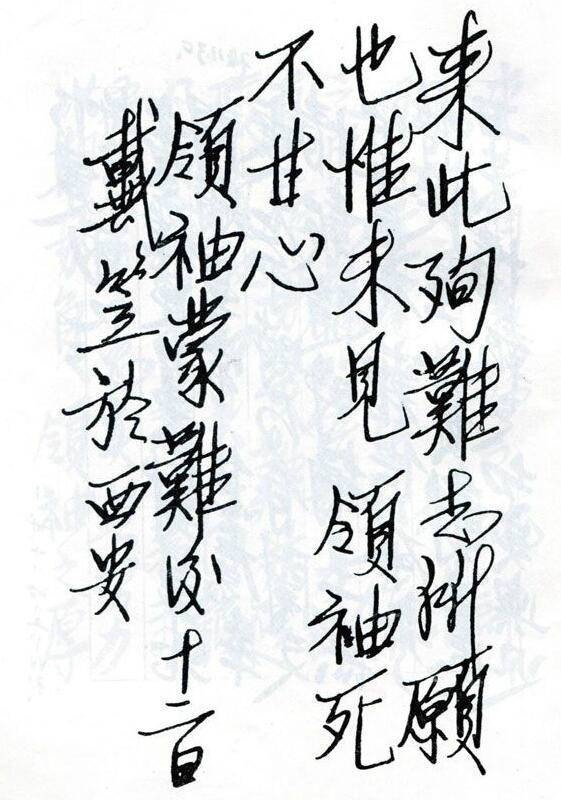 来此殉難志所願
也惟未見 領袖死
不甘心
領袖蒙難後十二日
戴笠於西安